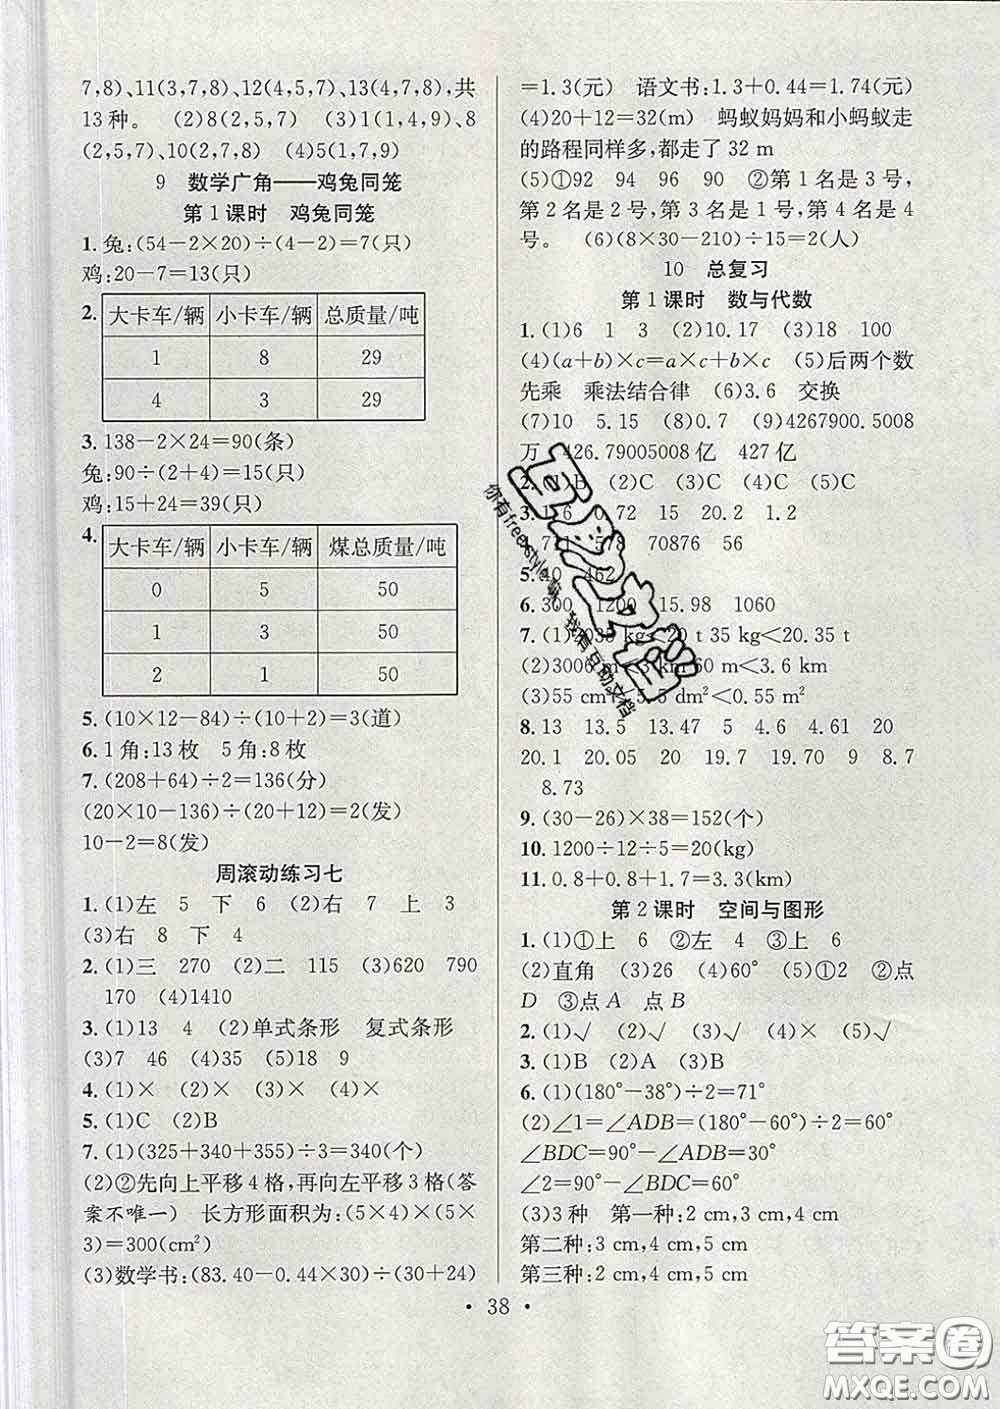 7,8)、11(3,7,8)、12(4,5,7)、13(4,7,8),共
13种。 (2)8(2,5,7) (3)1(1,4,9)、8
(2,5,7)、10(2,7,8) (4)5(1,7,9)
9 数学广角——鸡兔同笼
第1课时 鸡兔同笼
1.兔:(54－2×20)÷(4－2)＝7(只)
鸡:20－7＝13(只)
2.
大卡车/辆 小卡车/辆 总质量/吨
1 8 29
4 3 29
3.138－2×24＝90(条)
兔:90÷(2＋4)＝15(只)
鸡:15＋24＝39(只)
4.
大卡车/辆 小卡车/辆 煤总质量/吨
0 5 50
1 3 50
2 1 50
5.(10×12－84)÷(10＋2)＝3(道)
6.1角:13枚 5角:8枚
7.(208＋64)÷2＝136(分)
(20×10－136)÷(20＋12)＝2(发)
10－2＝8(发)
周滚动练习七
1.(1)左 5 下 6 (2)右 7 上 3
(3)右 8 下 4
2.(1)三 270 (2)二 115 (3)620 790
170 (4)1410
3.(1)13 4 (2)单式条形 复式条形
(3)7 46 (4)35 (5)18 9
4.(1)× (2)× (3)× (4)×
5.(1)C (2)B
7.(1)(325＋340＋355)÷3＝340(个)
(2)②先向上平移4格,再向左平移3格(答
案不唯一) 长方形面积为:(5×4)×(5×
3)＝300(cm²)
(3)数学书:(83.40－0.44×30)÷(30＋24)
＝1.3(元) 语文书:1.3＋0.44＝1.74(元)
(4)20＋12＝32(m) 蚂蚁妈妈和小蚂蚁走
的路程同样多,都走了32 m
(5)①92 94 96 90 ②第1名是3号,
第2名是2号,第3名是1号,第4名是4
号。 (6)(8×30－210)÷15＝2(人)
10 总复习
第1课时 数与代数
1.(1)6 1 3 (2)10.17 (3)18 100
(4)(a＋b)×c＝a×c＋b×c (5)后两个数
先乘 乘法结合律 (6)3.6 交换
(7)10 5.15 (8)0.7 (9)4267900.5008
万 426.79005008亿 427亿
2.(1)B (2)C (3)C (4)C (5)C
3.176 0.72 15 20.2 1.2
70876 56
5.40 462
6.300 1200 15.98 1060
7.(1) kg＜20 t 35 kg＜20.35 t
(2)3006 m＜3 km 60 m＜3.6 km
(3)55 cm²＜5.5 dm²＜0.55 m²
8.13 13.5 13.47 5 4.6 4.61 20
20.1 20.05 20 19.7 19.70 9 8.7
8.73
9.(30－26)×38＝152(个)
10.1200÷12÷5＝20(kg)
11.0.8＋0.8＋1.7＝3.3(km)
第2课时 空间与图形
1.(1)①上 6 ②左 4 ③上 6
(2)直角 (3)26 (4)60° (5)①2 ②点
D ③点A 点B
2.(1)√ (2)√ (3)√ (4)× (5)√
3.(1)B (2)A (3)B
6.(1)(180°－38°)÷2＝71°
(2)∠1＝∠ADB＝(180°－60°)÷2＝60°
∠BDC＝90°－∠ADB＝30°
∠2＝90°－∠BDC＝60°
(3)3种 第一种:2 cm,3 cm,4 cm
第二种:3 cm,4 cm,5 cm
第三种:2 cm,4 cm,5 cm
· 38 ·
互动文档
你有freestyle嘛,我有互动文档
答案圈
MXQE.COM